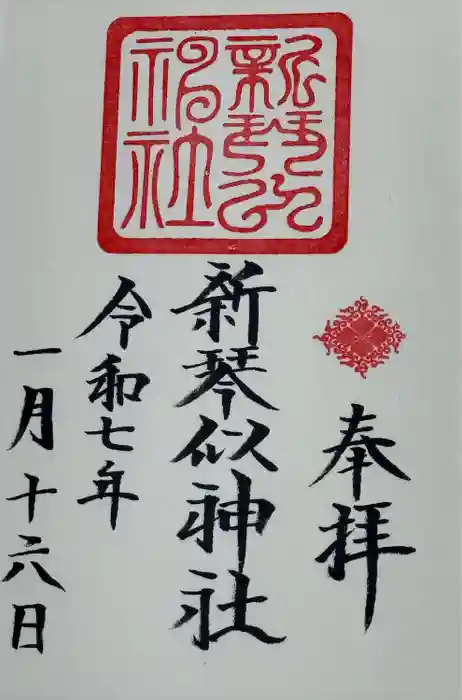 奉拝
新琴似神社
新琴似
神社
令和七年
一月十六日